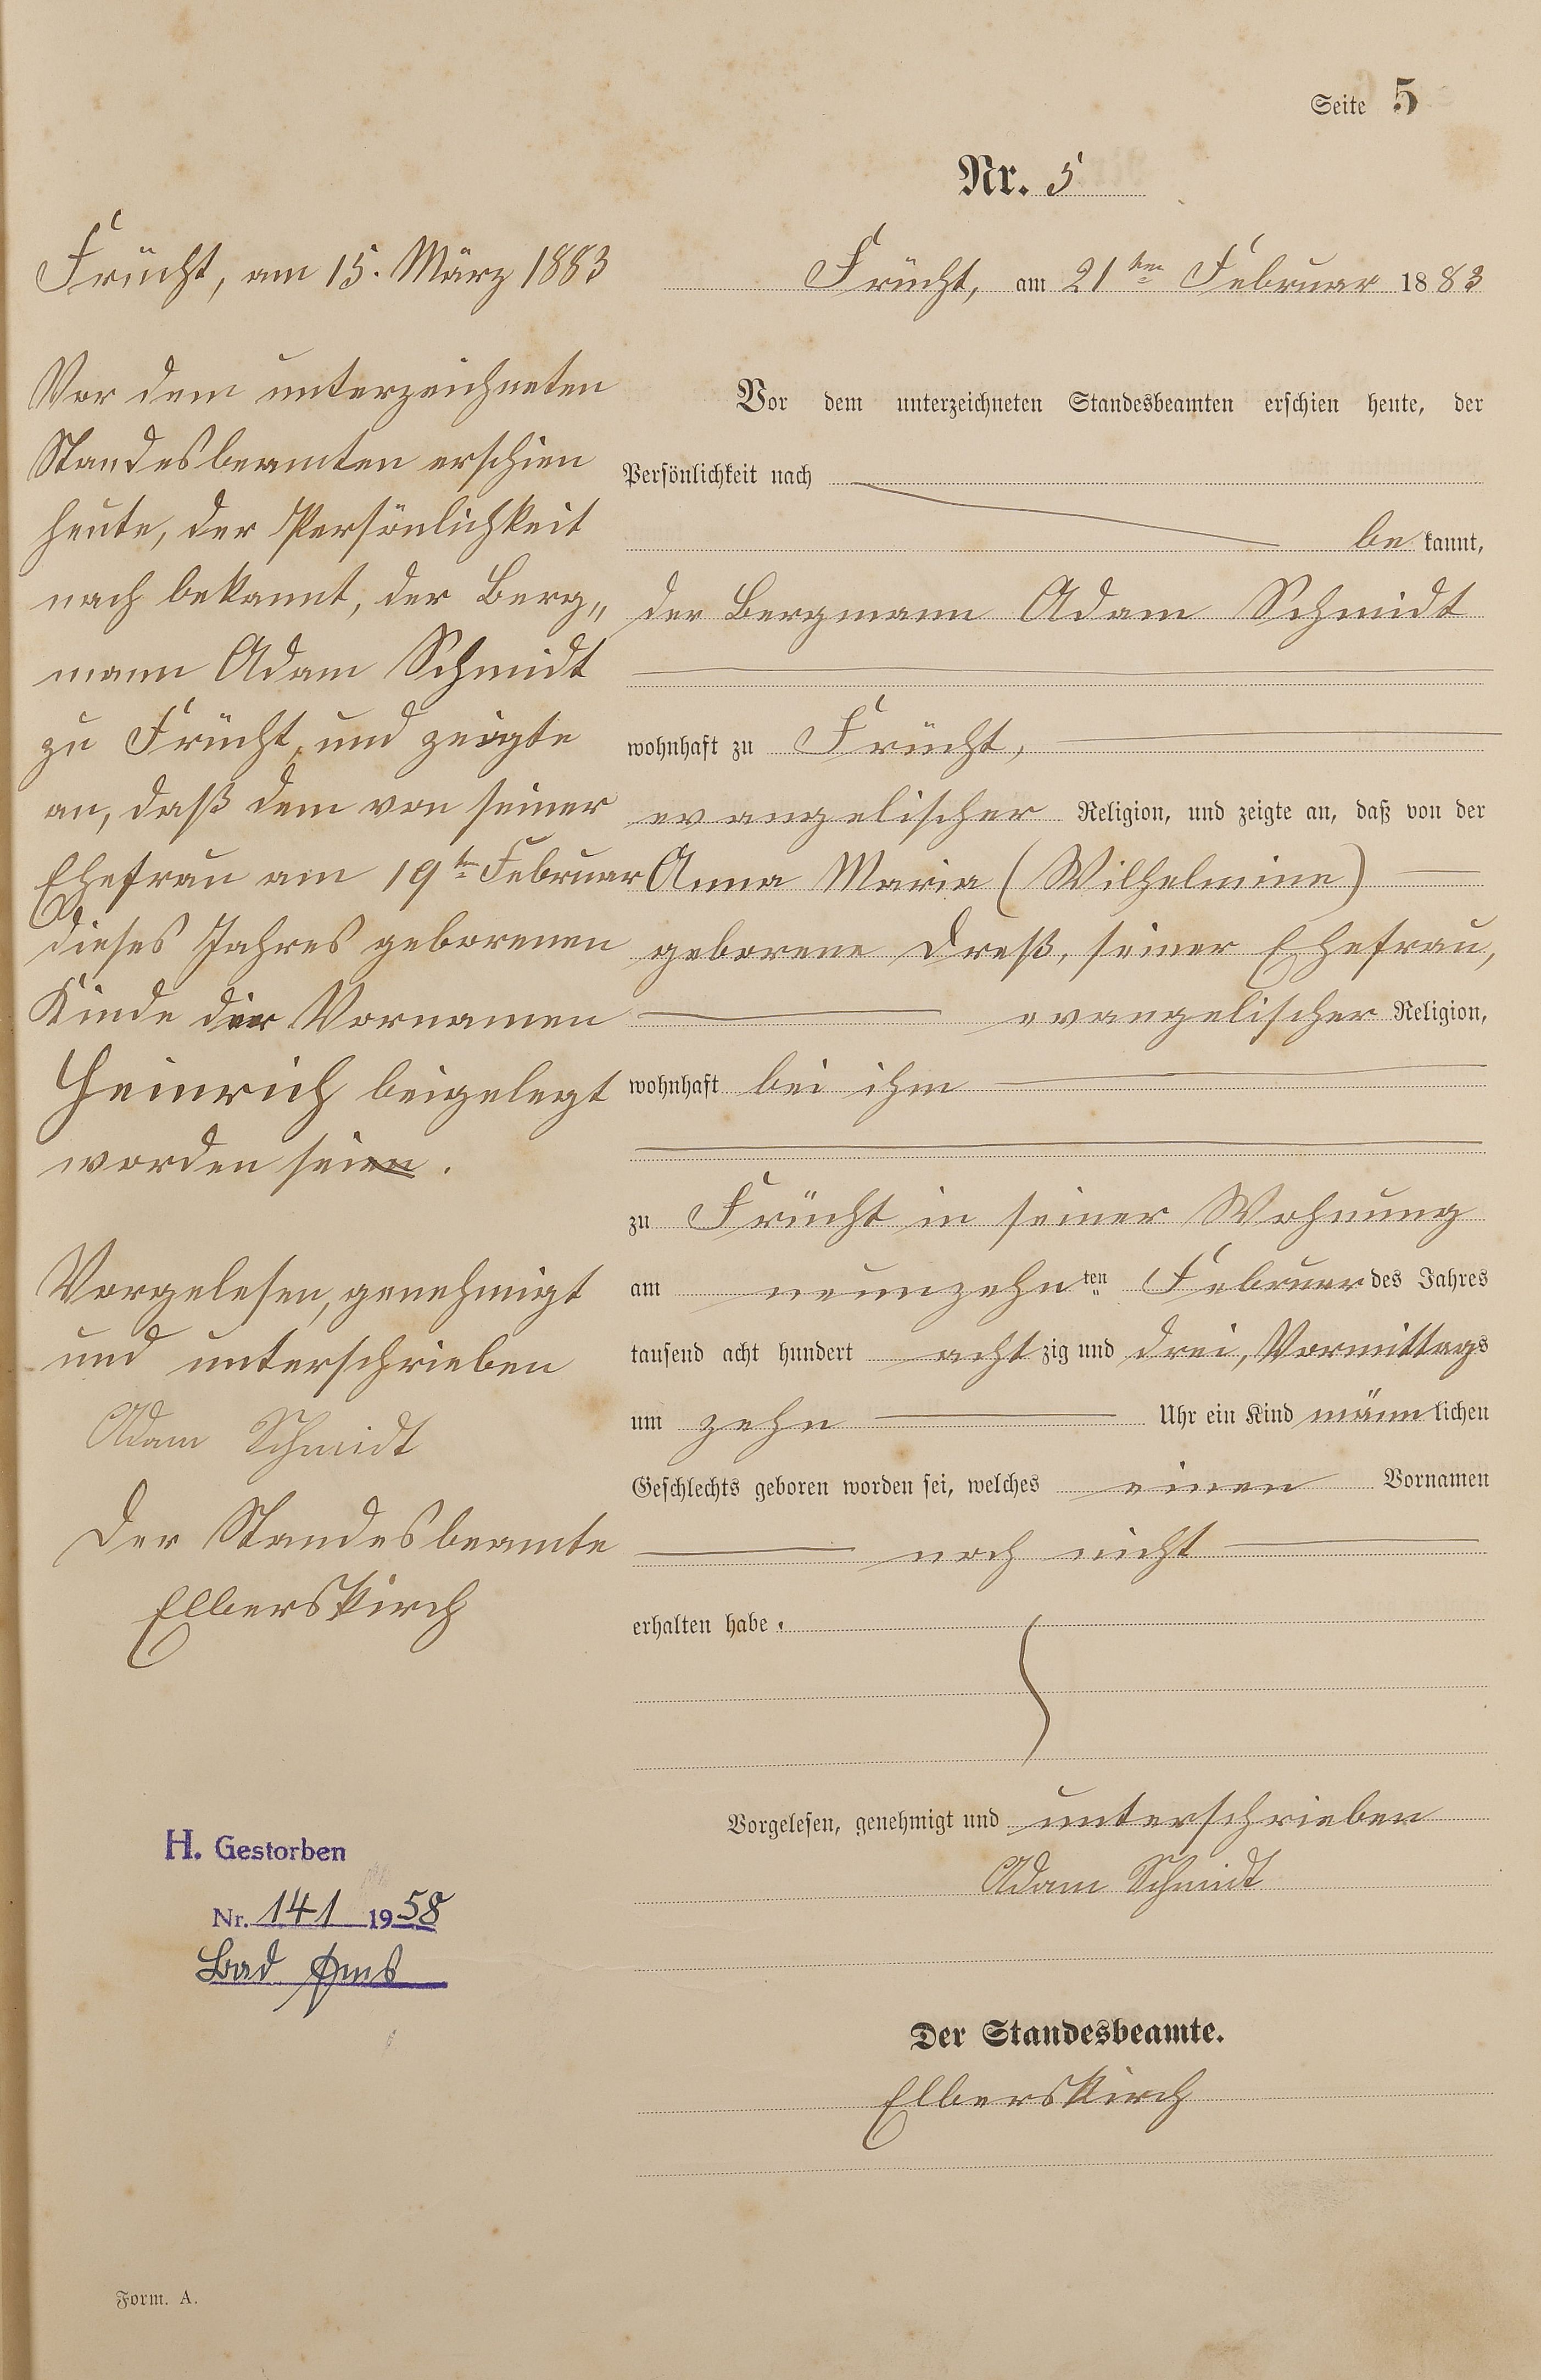 Seite 5
Nr. 5
Frücht, am 15. März 1883
Vor dem unterzeichneten
Standesbeamten erschien
heute, der Persönlichkeit
nach bekannt, der Berg„
mann Adam Schmidt
zu Frücht, und zeigte
an, daß dem von seiner
Ehefrau am 19ten Februar
dieses Jahres geborenen
Kinde der Vornamen
Heinrich beigelegt
worden sei.
Vorgelesen, genehmigt
und unterschrieben
Adam Schmidt
Der Standesbeamte
Elberskirch
H. Gestorben
Nr. 141 1958
Bad Ems
Frücht, am 21ten Februar 1883
Vor dem unterzeichneten Standesbeamten erschien heute, der
Persönlichkeit nach
be kannt,
der Bergmann Adam Schmidt
wohnhaft zu Frücht,
evangelischer Religion, und zeigte an, daß von der
Anna Maria (Wilhelmine)
geborene Dreß, seiner Ehefrau,
evangelischer Religion,
wohnhaft bei ihm
zu Frücht in seiner Wohnung
am neunzehnten Februar des Jahres
tausend acht hundert achtzig und drei, Vormittags
um zehn Uhr ein Kind männlichen
Geschlechts geboren worden sei, welches einen Vornamen
noch nicht
erhalten habe.
Vorgelesen, genehmigt und unterschrieben
Adam Schmidt
Der Standesbeamte.
Elberskirch
Form. A.